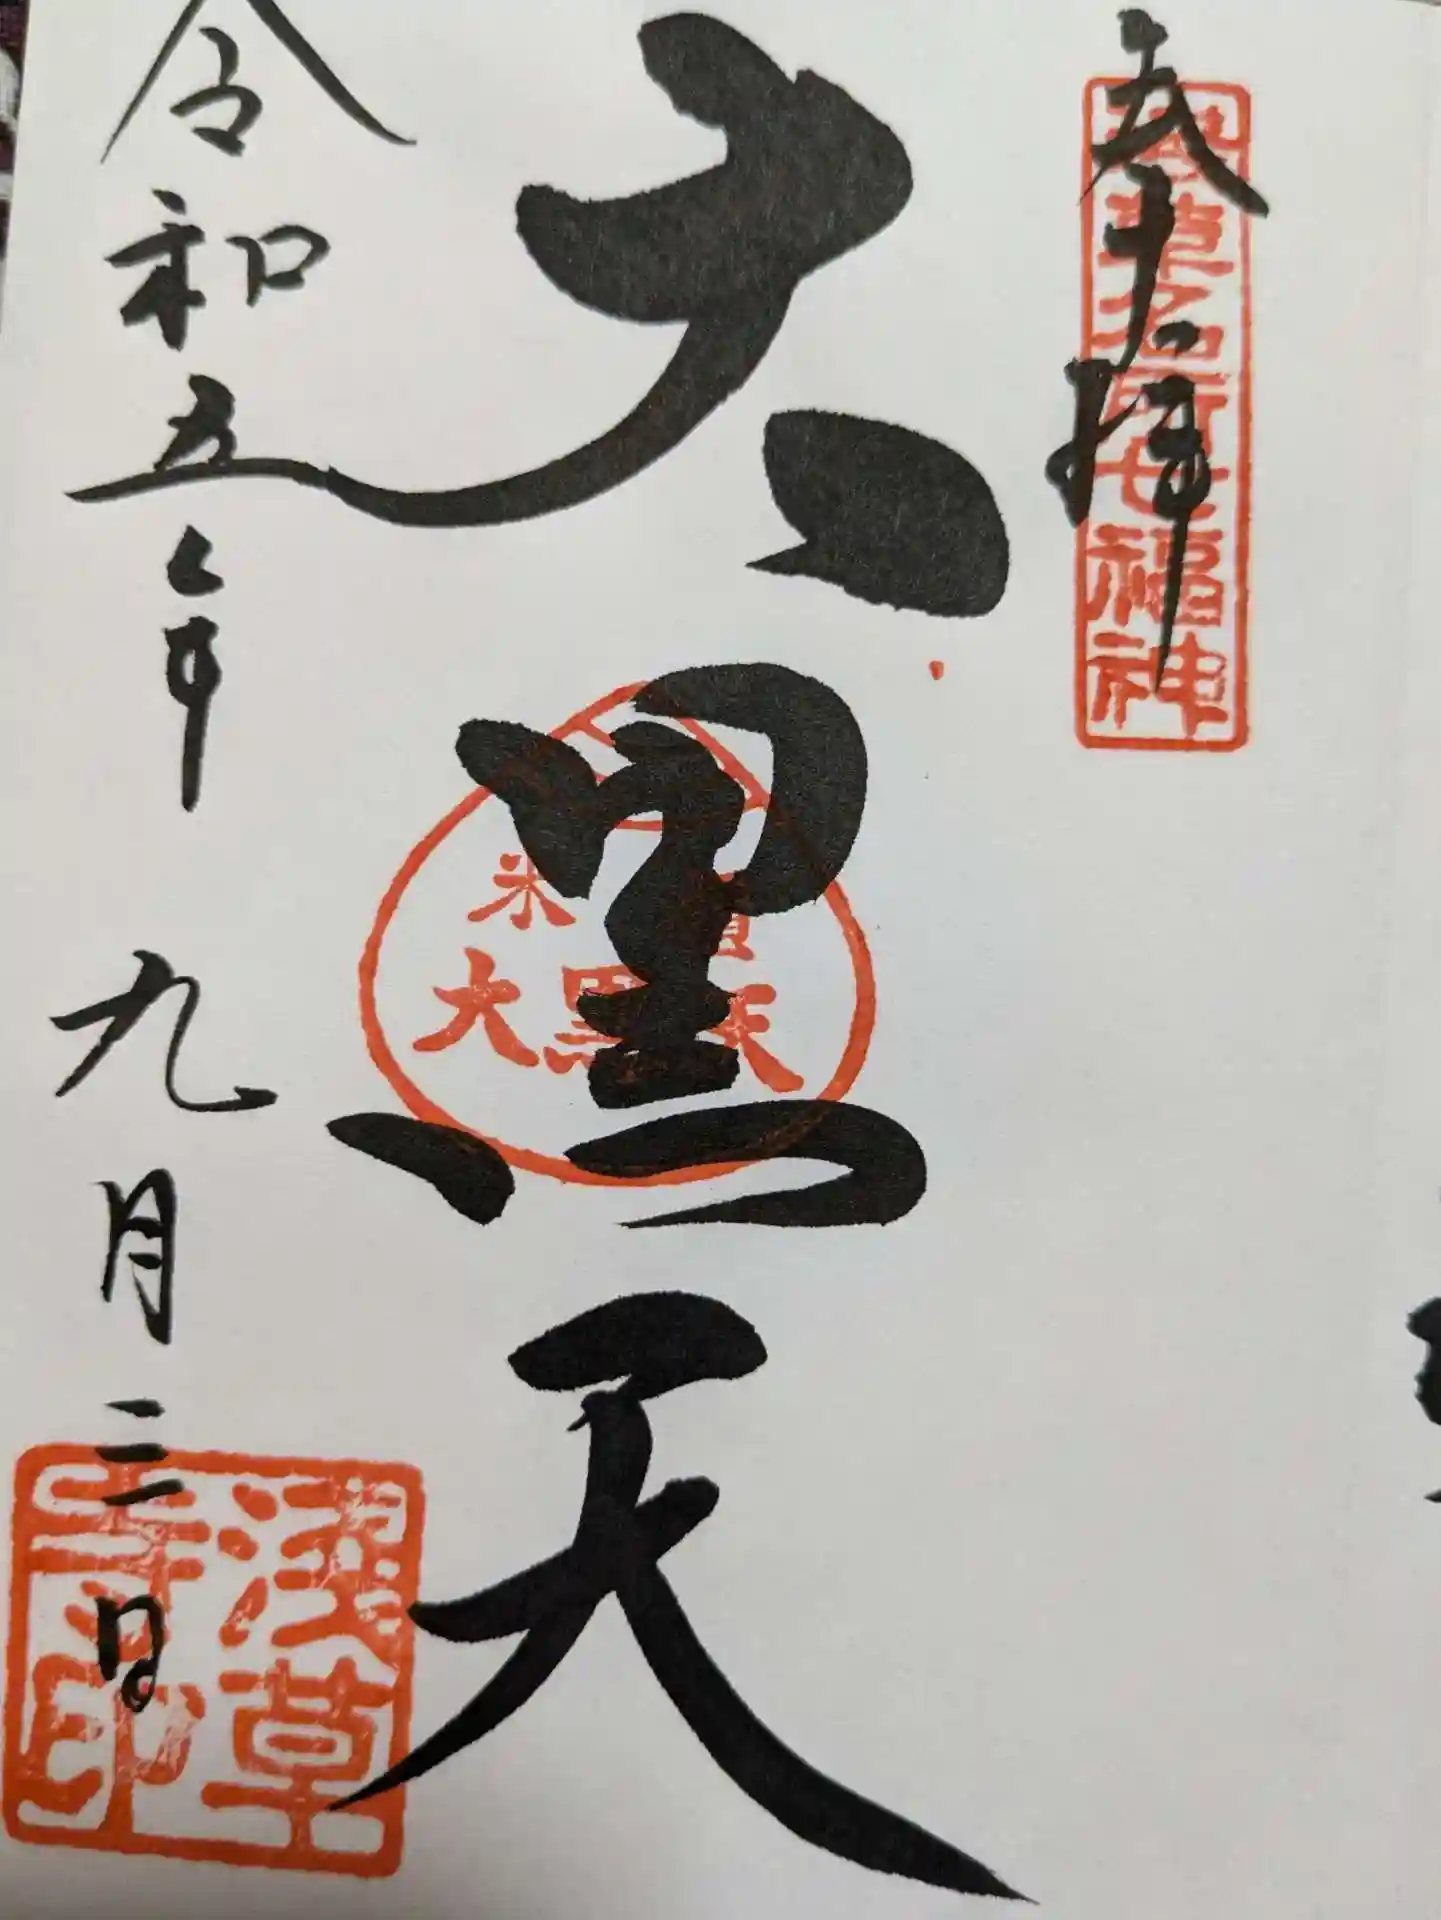 奉拝
浅草名所七福神
大黒天
米
大黒天
令和五年九月三日
浅草
寺印